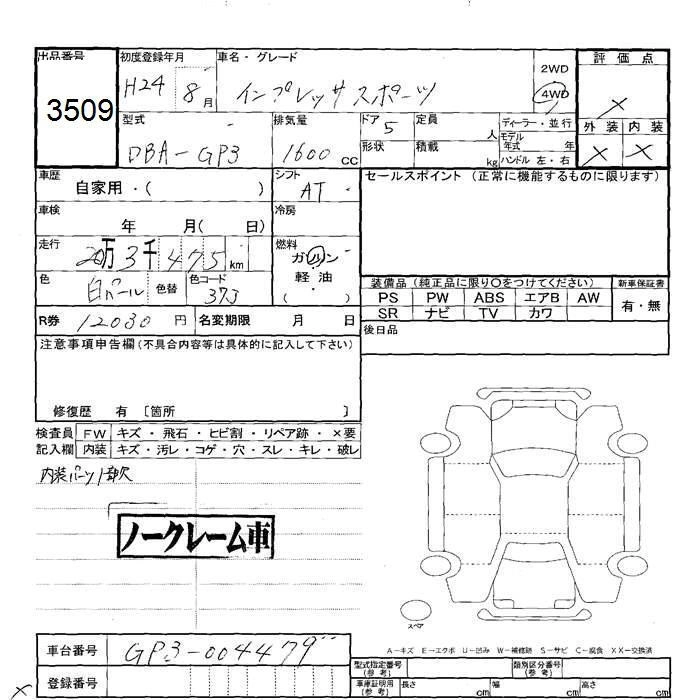 出品番号
3509
初度登録年月
H24 8月
車名・グレード
インプレッサスポーツ
2WD
4WD
評価点
×
外装 内装
× ×
型式
DBA-GP3
排気量
1600 cc
ドア 5
定員 人
形状
積載 kg
ディーラー・並行
モデル年式 年
ハンドル 左・右
車歴
自家用・( )
シフト
AT
セールスポイント (正常に機能するものに限ります)
車検
年 月( 日)
冷房
走行
20万3千475km
燃料
ガソリン
軽油
( )
色
白パール
色替
色コード
373
装備品 (純正品に限り○をつけてください)
新車保証書
PS PW ABS エアB AW
SR ナビ TV カワ
有・無
R券 12030円
名変期限 月 日
後日品
注意事項申告欄(不具合内容等は具体的に記入して下さい)
修復歴 有 〔箇所 〕
検査員 FW キズ・飛石・ヒビ割・リペア跡・×要
記入欄 内装 キズ・汚レ・コゲ・穴・スレ・キレ・破レ
内装パーツ1部欠
ノークレーム車
スペア
A-キズ E-エクボ U-凹み W-補修跡 S-サビ C-腐食 XX-交換済
車台番号
GP3-004479
登録番号
×
型式指定番号
(参考)
類別区分番号
(参考)
車庫証明用
(参考)
長さ cm
幅 cm
高さ cm